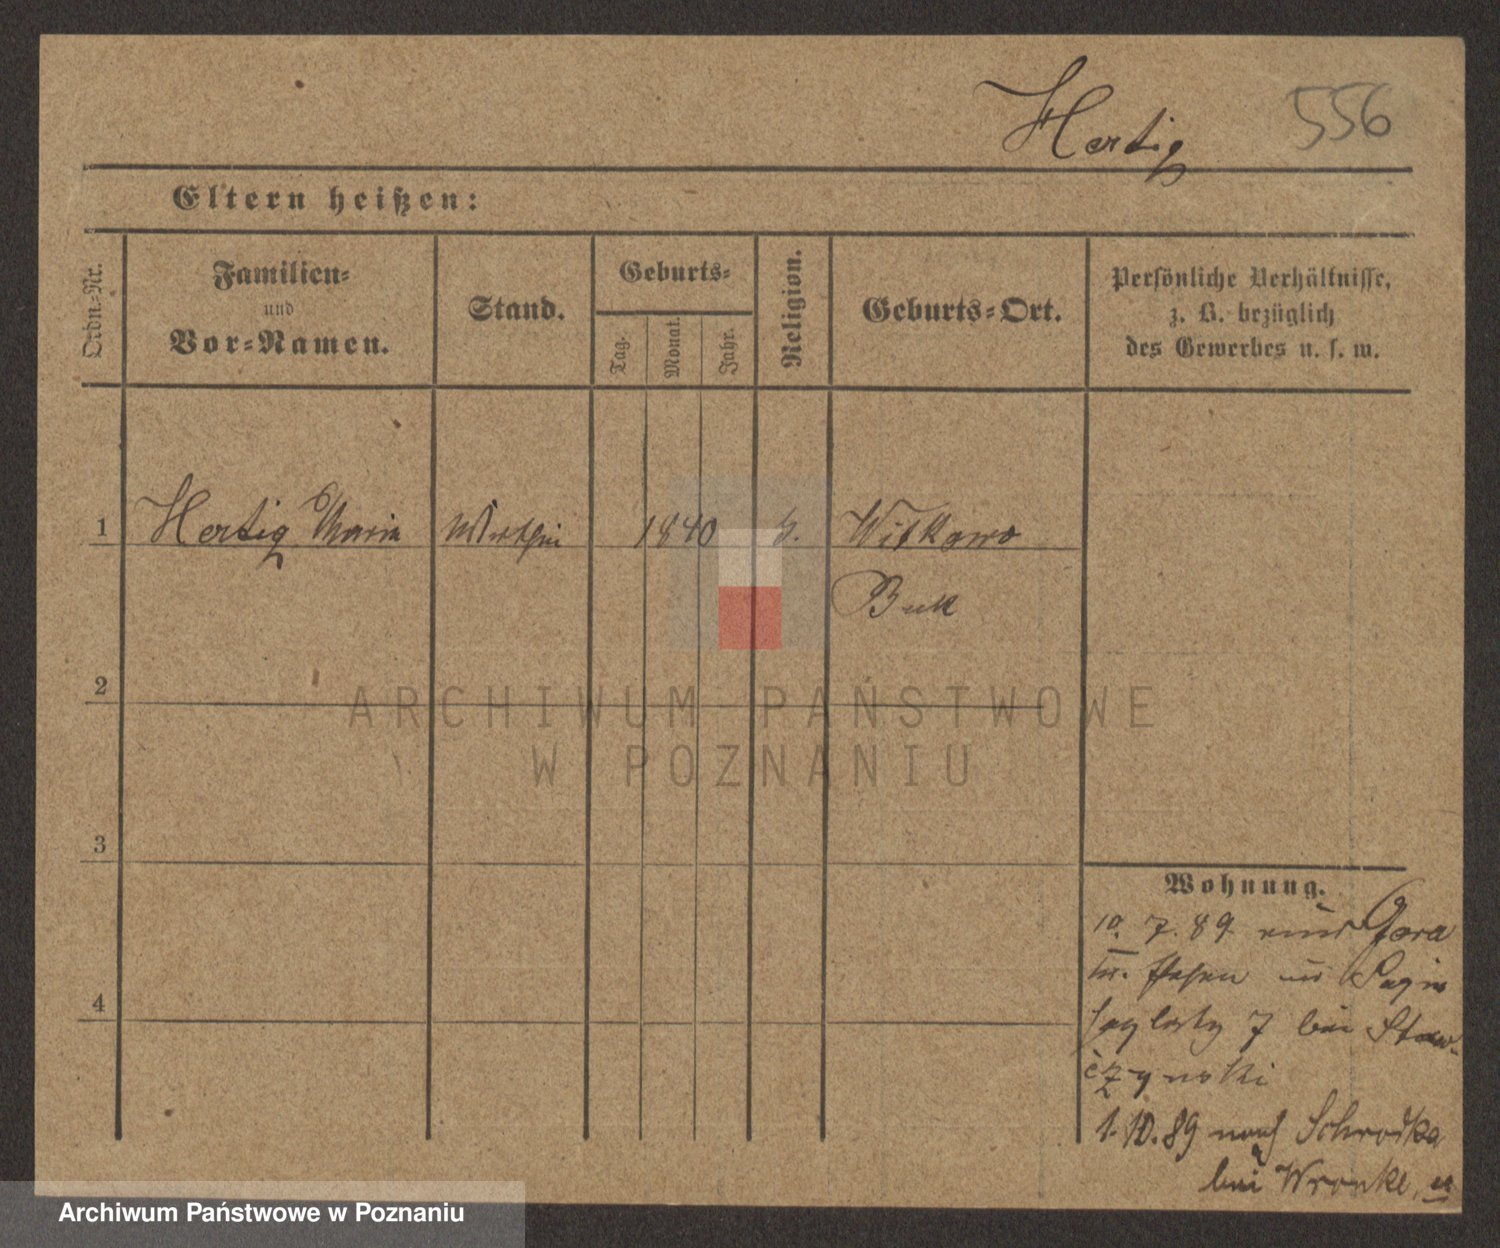 Hertig 556
Eltern heißen:
Ordn.-Nr.
Familien-
und
Vor-Namen.
Stand.
Geburts-
Tag.
Monat.
Jahr.
Religion.
Geburts-Ort.
Persönliche Verhältnisse,
z. B. bezüglich
des Gewerbes u. s. w.
1 Hertig Maria Wirthin 1840 k. Witkowo
Buk
2
ARCHIWUM PAŃSTWOWE
W POZNANIU
3
Wohnung.
10. 7. 89 aus Gora
7 bei Staw-
czynski
4
1. 10. 89 nach Schrodka
bei Wronke
Archiwum Państwowe w Poznaniu